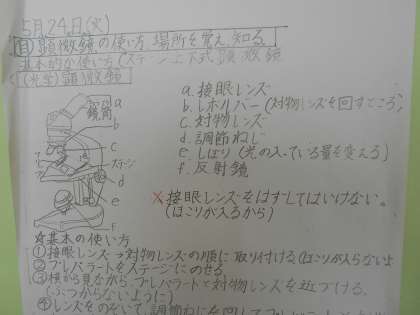 5月24日(火)
目 顕微鏡の使い方、場所を覚え、知る。
基本的な使い方(ステージ上下式顕微鏡
(光学)顕微鏡
鏡筒
a
b
c
ステージ
d
e
f
a. 接眼レンズ
b. レボルバー(対物レンズを回すところ)
c. 対物レンズ
d. 調節ねじ
e. しぼり(光の入っている量を変える)
f. 反射鏡
×接眼レンズをはずしてはいけない。
(ほこりが入るから)
☆基本の使い方
①接眼レンズ→対物レンズの順に取り付ける(ほこりが入らないよ
②プレパラートをステージにのせる。
③横から見ながら、プレパラートと対物レンズを近づける。
(ぶつからないように)
④レンズをのぞいて、調節ねじを回して